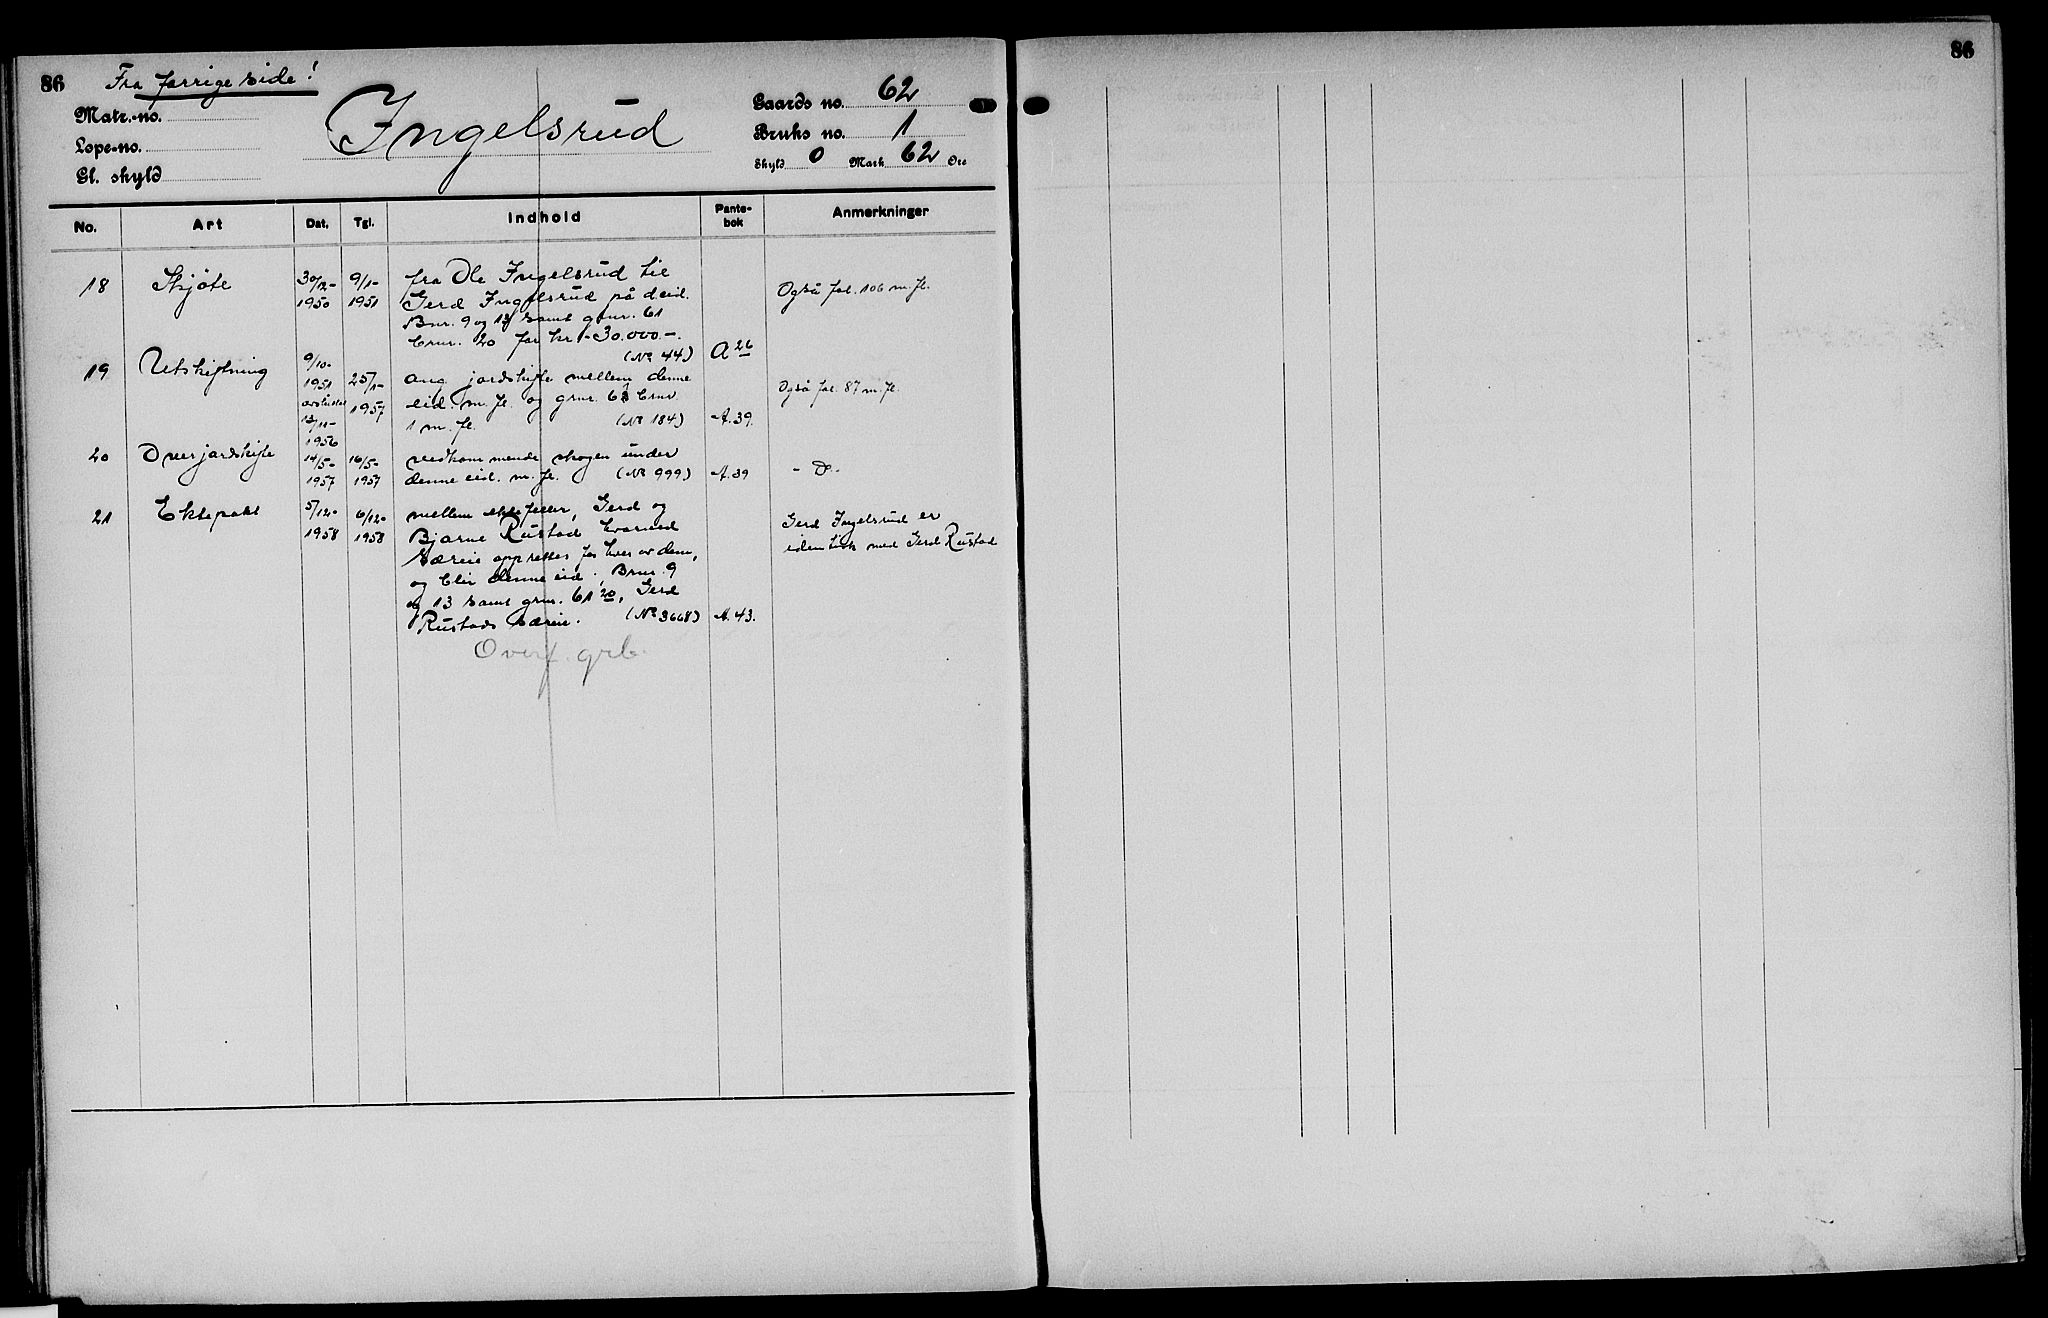 86 Fra forrige side! 86
Matr.-no.
Lope-no.
Gl. skyld
Ingelsrud
Gaards no. 62
Bruks no. 1
Skyld 0 Mark 62 Øre
No. Art Dat. Tgl. Indhold Pante-bok Anmerkninger
18 Skjøte 30/12- 1950 9/1- 1951 fra Ole Ingelsrud til
Gerd Ingelsrud på d.eid.
Bnr. 9 og 13 samt gnr. 61
bnr. 20 for kr. 30.000.-.
(No 44) A 26
Også fol. 106 m. fl.
19 Utskiftning 9/10- 1951 avsluttet 13/11- 1956 25/1- 1957 ang. jordskifte mellem denne
eid. m. fl. og gnr. 63 bnr
1 m. fl. (No 184) A. 39.
Også fol. 87 m. fl.
20 Overjordskifte 14/5- 1957 16/5- 1957 vedkommende skogen under
denne eid. m. fl. (No 999) A. 39 - D.-
21 Ektepakt 5/12- 1958 6/12- 1958 mellem ektefeller, Gerd og
Bjarne Rustad hvorved
særeie opprettes for hver av dem,
og blir denne eid., Bnr. 9
og 13 samt gnr. 61 20, Gerd
Rustads særeie. (No 3668) A. 43.
Gerd Ingelsrud er
identisk med Gerd Rustad
Overf. grb.